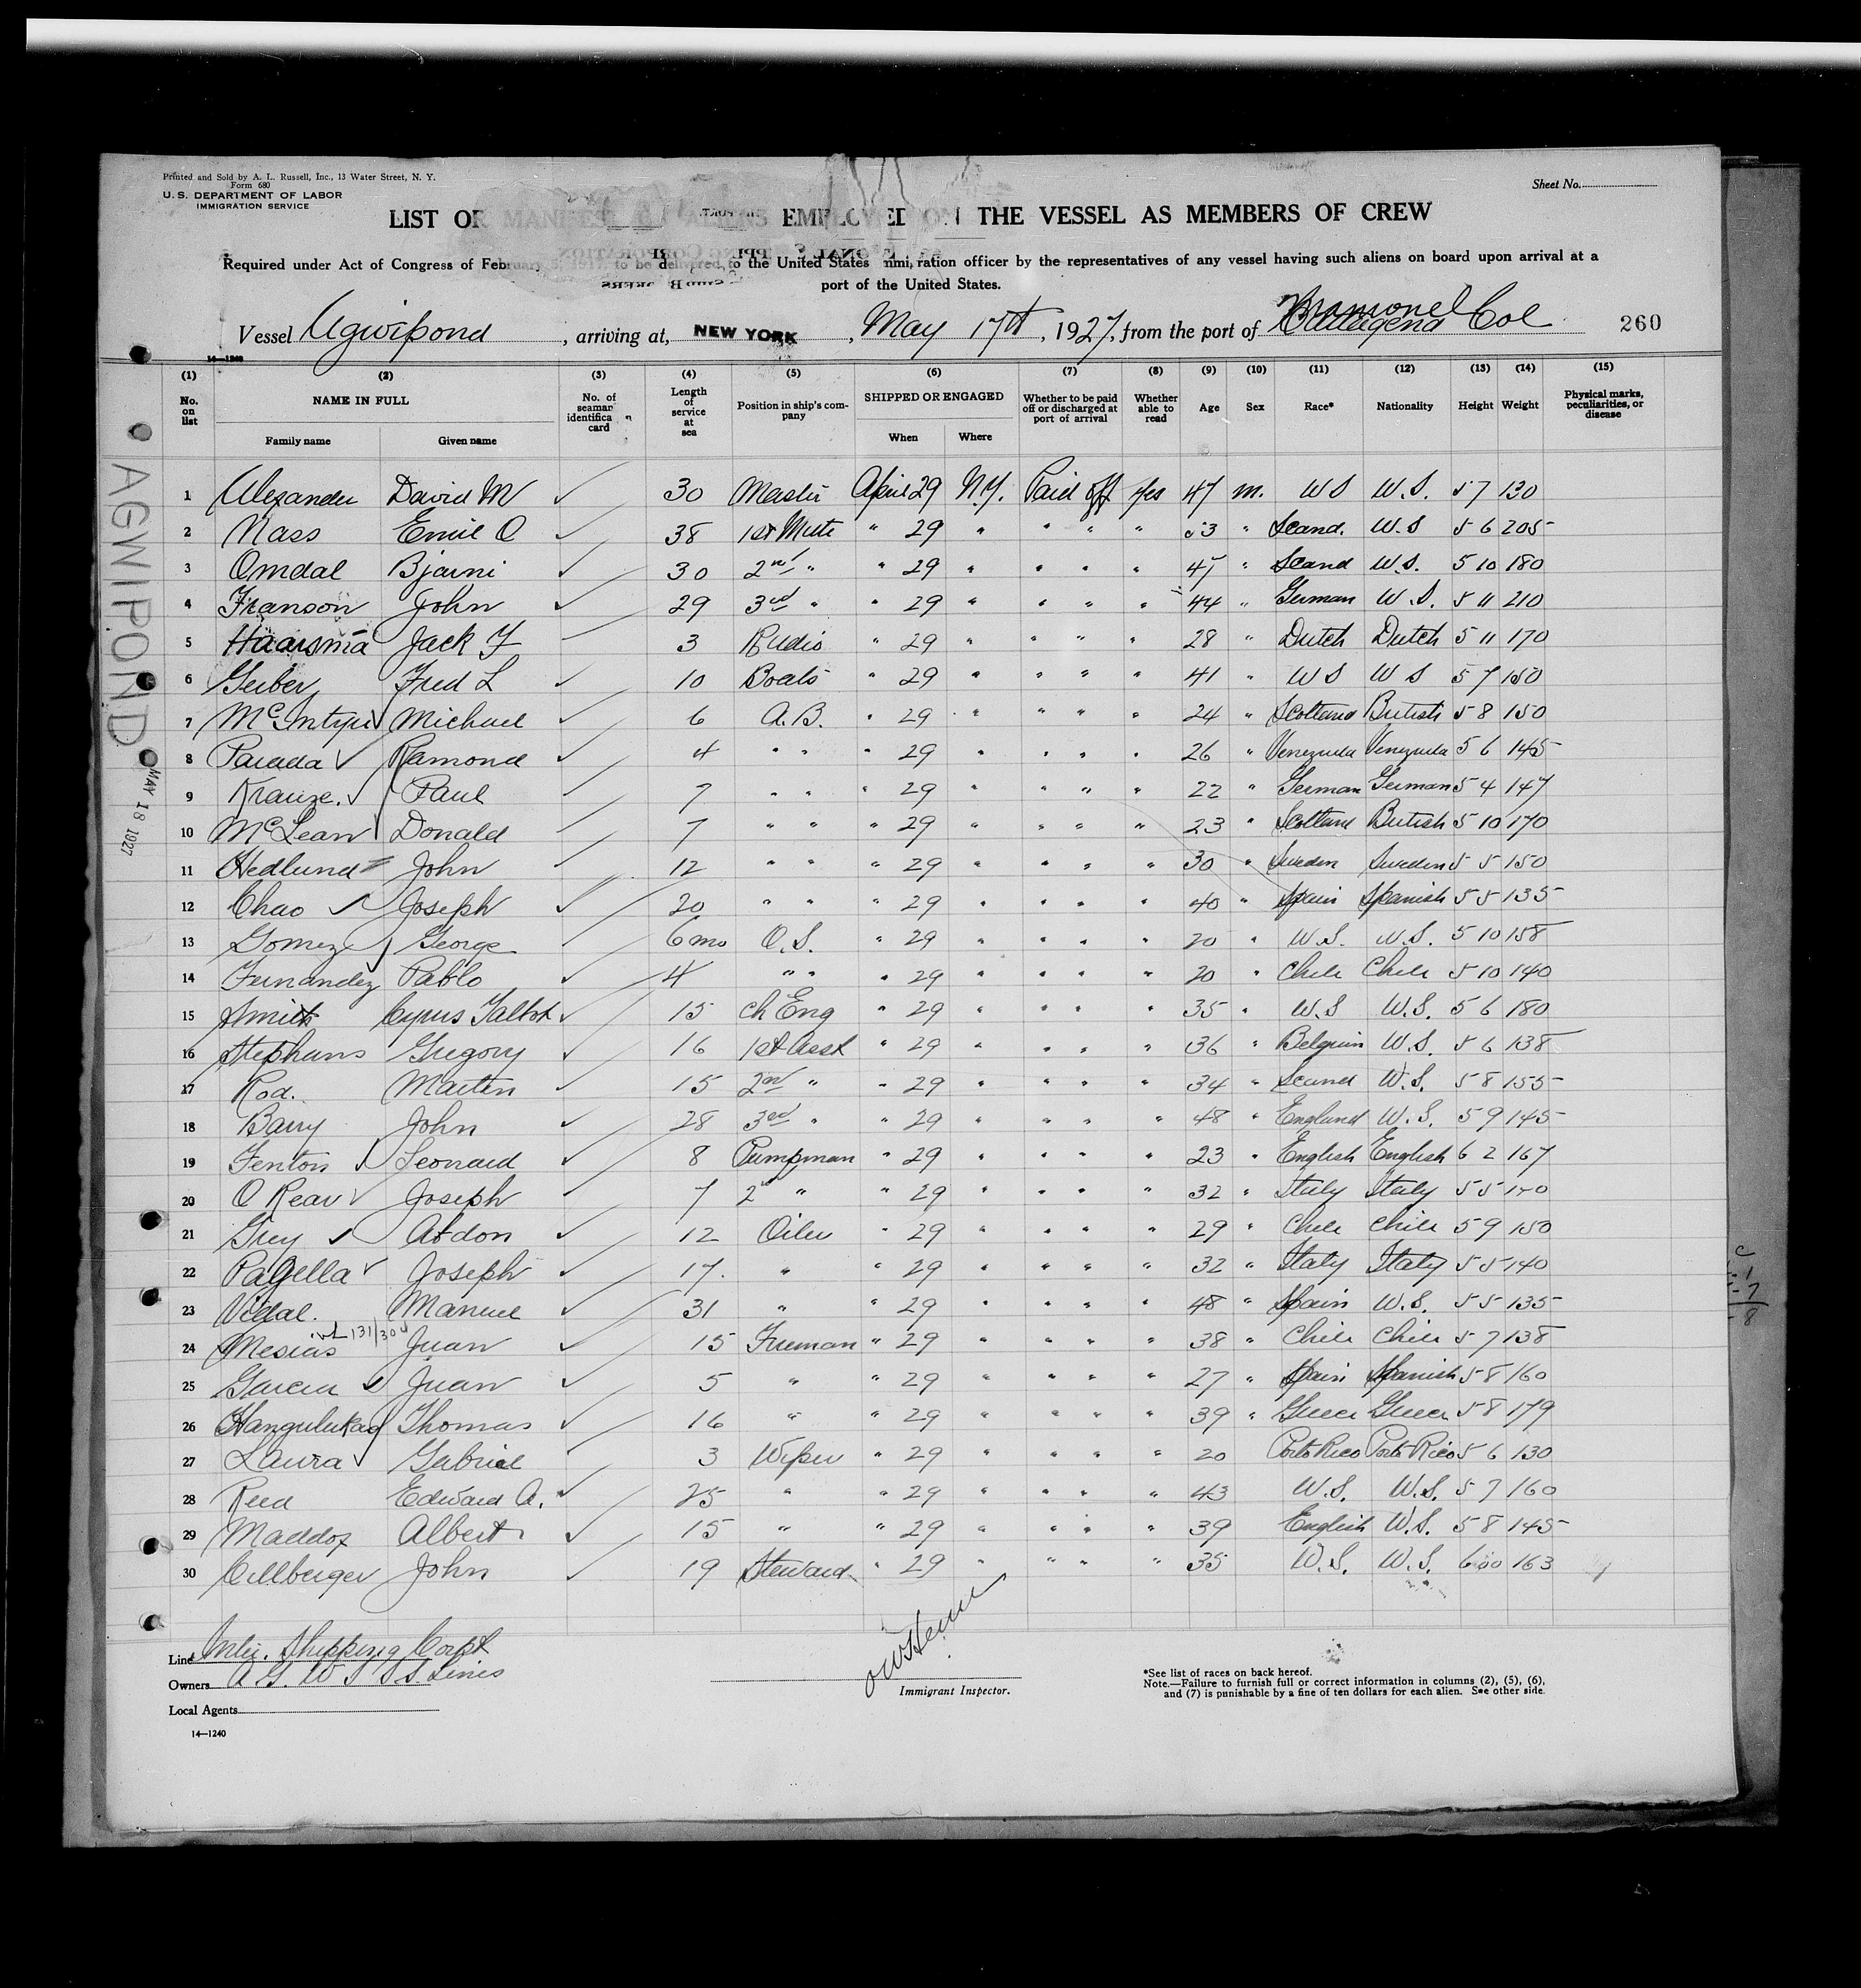 Printed and Sold by A. L. Russell, Inc., 13 Water Street, N. Y.
Form 680
U. S. DEPARTMENT OF LABOR
IMMIGRATION SERVICE
Sheet No.
LIST OF EMPLOYED ON THE VESSEL AS MEMBERS OF CREW
Required under Act of Congress of February 5, 1917, to be delivered to the United States immigration officer by the representatives of any vessel having such aliens on board upon arrival at a
port of the United States.
Vessel Agwipond, arriving at, NEW YORK, May 17th, 1927, from the port of Mamonel Cartagena Col 260
14—1240
(1) (2) (3) (4) (5) (6) (7) (8) (9) (10) (11) (12) (13) (14) (15)
No. on list NAME IN FULL Family name Given name No. of seaman identification card Length of service at sea Position in ship's company SHIPPED OR ENGAGED When Where Whether to be paid off or discharged at port of arrival Whether able to read Age Sex Race* Nationality Height Weight Physical marks, peculiarities, or disease
1 Alexander David M 30 Master April 29 N.Y. Paid off yes 47 m. U S U.S. 5 7 130
2 Nass Emil O 38 1st Mate " 29 " " " " 53 " Scand. U.S 5 6 205
3 Omdal Bjarni 30 2nd " " 29 " " " " 45 " Scand U.S. 5 10 180
4 Franson John 29 3rd " " 29 " " " " 44 " German U.S. 5 11 210
5 Haarsma Jack F 3 Radio " 29 " " " " 28 " Dutch Dutch 5 11 170
6 Geiber Fred L 10 Boats " 29 " " " " 41 " U S U S 5 7 150
7 McIntyre Michael 6 A.B. " 29 " " " " 24 " Scotland British 5 8 150
8 Parada Ramond 4 " " " 29 " " " " 26 " Venezuela Venezuela 5 6 145
9 Krause Paul 7 " " " 29 " " " " 22 " German German 5 4 147
10 McLean Donald 7 " " " 29 " " " " 23 " Scotland British 5 10 170
11 Hedlund John 12 " " " 29 " " " " 30 " Sweden Sweden 5 5 150
12 Chao Joseph 20 " " " 29 " " " " 40 " Spain Spanish 5 5 135
13 Gomez George 6 mo O.S. " 29 " " " " 20 " U.S. U.S. 5 10 158
14 Fernandez Pablo 4 " " " 29 " " " " 20 " Chile Chile 5 10 140
15 Smith Cyrus Talbot 15 Ch Eng " 29 " " " " 35 " U.S U.S. 5 6 180
16 Stephans Gregory 16 1st Asst " 29 " " " " 36 " Belgium U.S. 5 6 138
17 Rod. Martin 15 2nd " " 29 " " " " 34 " Scand U.S. 5 8 155
18 Barry John 28 3rd " " 29 " " " " 48 " England U.S. 5 9 145
19 Fenton Leonard 8 Pumpman " 29 " " " " 23 " English English 6 2 167
20 O Rear Joseph 7 2nd " " 29 " " " " 32 " Italy Italy 5 5
21 Grey Abdon 12 Oiler " 29 " " " " 29 " Chile Chile 5 9 150
22 Pagella Joseph 17. " " 29 " " " " 32 " Italy Italy 5 5 140
23 Vidal. Manuel 31 " " 29 " " " " 48 " Spain U.S. 5 5 135
131/30
24 Mesias Juan 15 Fireman " 29 " " " " 38 " Chile Chile 5 7 138
25 Garcia Juan 5 " " 29 " " " " 27 " Spain Spanish 5 8 160
26 Thomas 16 " " 29 " " " " 39 " Greece Greece 5 8 179
27 Laura Gabriel 3 Wiper " 29 " " " " 20 Porto Rico Porto Rico 5 6 130
28 Reed Edward A. 25 " " 29 " " " " 43 U.S. U.S. 5 7 160
29 Maddox Albert 15 " " 29 " " " " 39 English U.S. 5 8 145
30 Cillberger John 19 Steward " 29 " " " " 35 U.S. U.S. 6 00 163
AGWIPOND
MAY 18 1927
Line Inter. Shipping Corpt
Owners A. G. W I S.S. Lines
Local Agents
14—1240
Immigrant Inspector.
*See list of races on back hereof.
Note.—Failure to furnish full or correct information in columns (2), (5), (6),
and (7) is punishable by a fine of ten dollars for each alien. See other side.